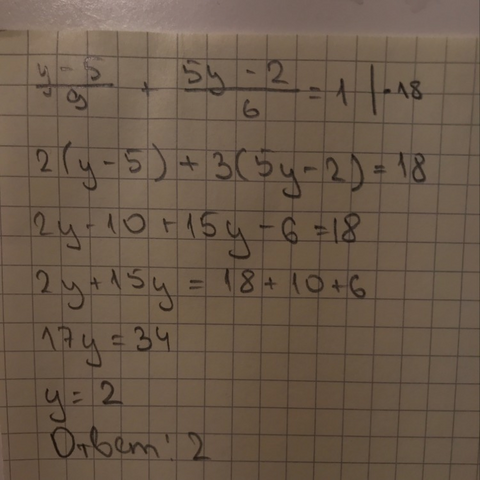 (y - 5)/9 + (5y - 2)/6 = 1 | · 18
2(y - 5) + 3(5y - 2) = 18
2y - 10 + 15y - 6 = 18
2y + 15y = 18 + 10 + 6
17y = 34
y = 2
Ответ: 2